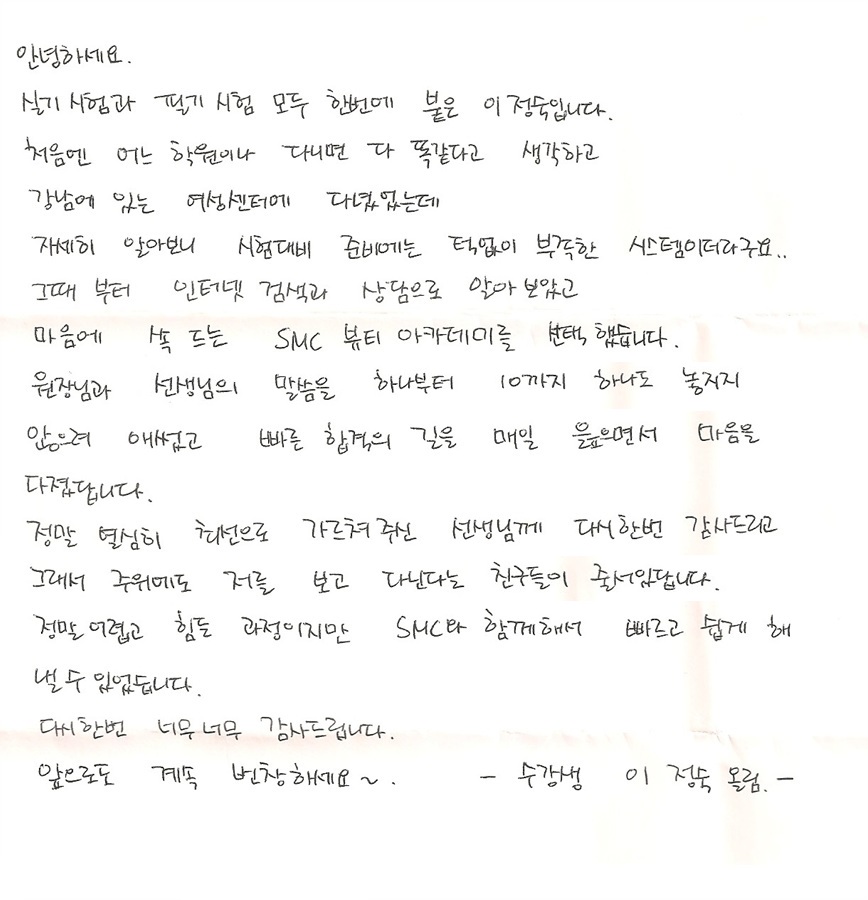 안녕하세요.
실기시험과 필기시험 모두 한번에 붙은 이정숙입니다.
처음엔 어느 학원이나 다니면 다 똑같다고 생각하고
강남에 있는 여성센터에 다녔었는데
자세히 알아보니 시험대비 준비에는 턱없이 부족한 시스템이더라구요..
그때 부터 인터넷 검색과 상담으로 알아 보았고
마음에 쏙 드는 SMC 뷰티 아카데미를 선택 했습니다.
원장님과 선생님의 말씀을 하나부터 10까지 하나도 놓치지
않으려 애썼고 빠른 합격의 길을 매일 읊으면서 마음을
다졌답니다.
정말 열심히 최선으로 가르쳐 주신 선생님께 다시한번 감사드리고
그래서 주위에도 저를 보고 다닌다는 친구들이 줄서있답니다.
정말 어렵고 힘든 과정이지만 SMC와 함께해서 빠르고 쉽게 해
낼 수 있었습니다.
다시한번 너무너무 감사드립니다.
앞으로도 계속 번창하세요~. - 수강생 이 정숙 올림. -